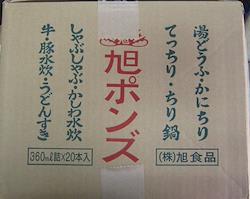 湯どうふ・かにちり
てっちり・ちり鍋
(株)旭食品
旭ポンズ
しゃぶしゃぶ・かしわ水炊
牛・豚水炊・うどんすき
360ml詰×20本入